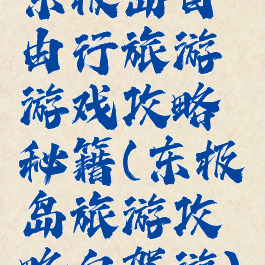 东极岛自
由行旅游
游戏攻略
秘籍(东极
岛旅游攻
略自驾游)